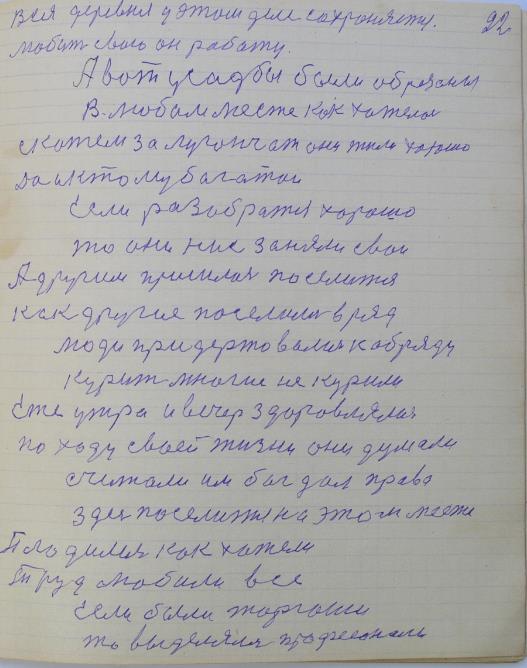 92
Вся деревня у этом деле сохроняется.
Любит свою он работу.
А вот усадбы были обрезаны
В любом месте как хотели
Скажем за лугом они жили хорошо
Да и к тому багатои
Если разобратя хорошо
то они низ заняли свои
А другим пришлося поселится
как другие поселилися в ряд
люди придертовалися к обряду
Курит многие не курили
Еже утра и вечер здоровлялися
по ходу своей жизни они думали
считали им бог дал право
здеся поселится на этом месте
Плодилися как хотели
Труд любили все
Если были торгаши
то выделялися професионалы